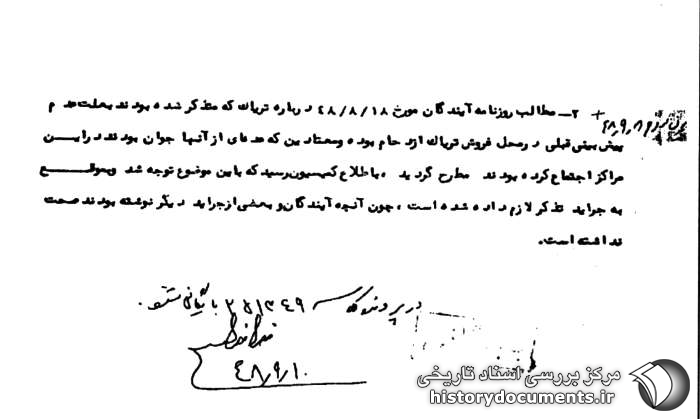 ۲ــ مطالب روزنامه آیندگان مورخ ۴۸/۸/۱۸ درباره تریاک که متذکر شده بودند بعلت عدم
پیش بینی قبلی در محل فروش تریاک ازدحام بوده و معتادین که عده‌ای از آنها جوان بودند در این
مراکز اجتماع کرده بودند مطرح گردید ، باطلاع کمیسیون رسید که باین موضوع توجه شد و بموقع
به جراید تذکر لازم داده شده است ، چون آنچه آیندگان و بعضی از جراید دیگر نوشته بودند صحت
نداشته است.
۴۸٫۹٫۸
در پرونده بایگانی شود.
۴۸٫۹٫۱۰
مرکز بررسی اسناد تاریخی
historydocuments.ir